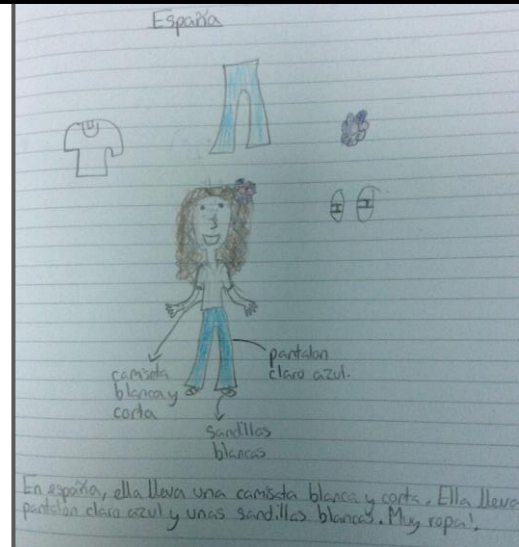 España
camiseta
blanca y
corta
pantalon
claro azul.
sandillas
blancas
En españa, ella lleva una camiseta blanca y corta. Ella lleva
pantalón claro azul y unas sandillas blancas. Muy ropa!.